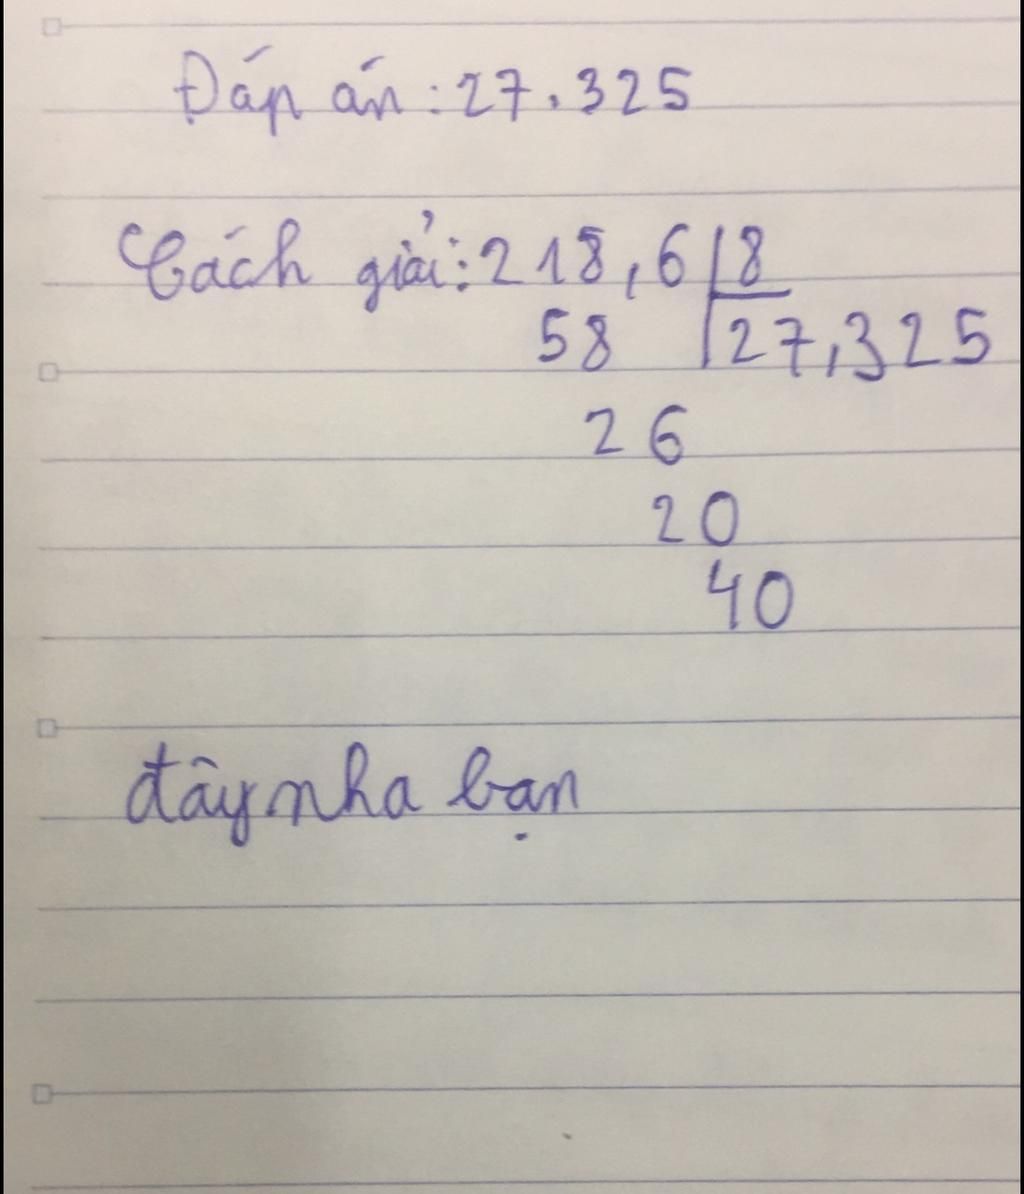 Đáp án: 27.325
Cách giải: 218,6 | 8
58 | 27,325
26
20
40
đây nha bạn